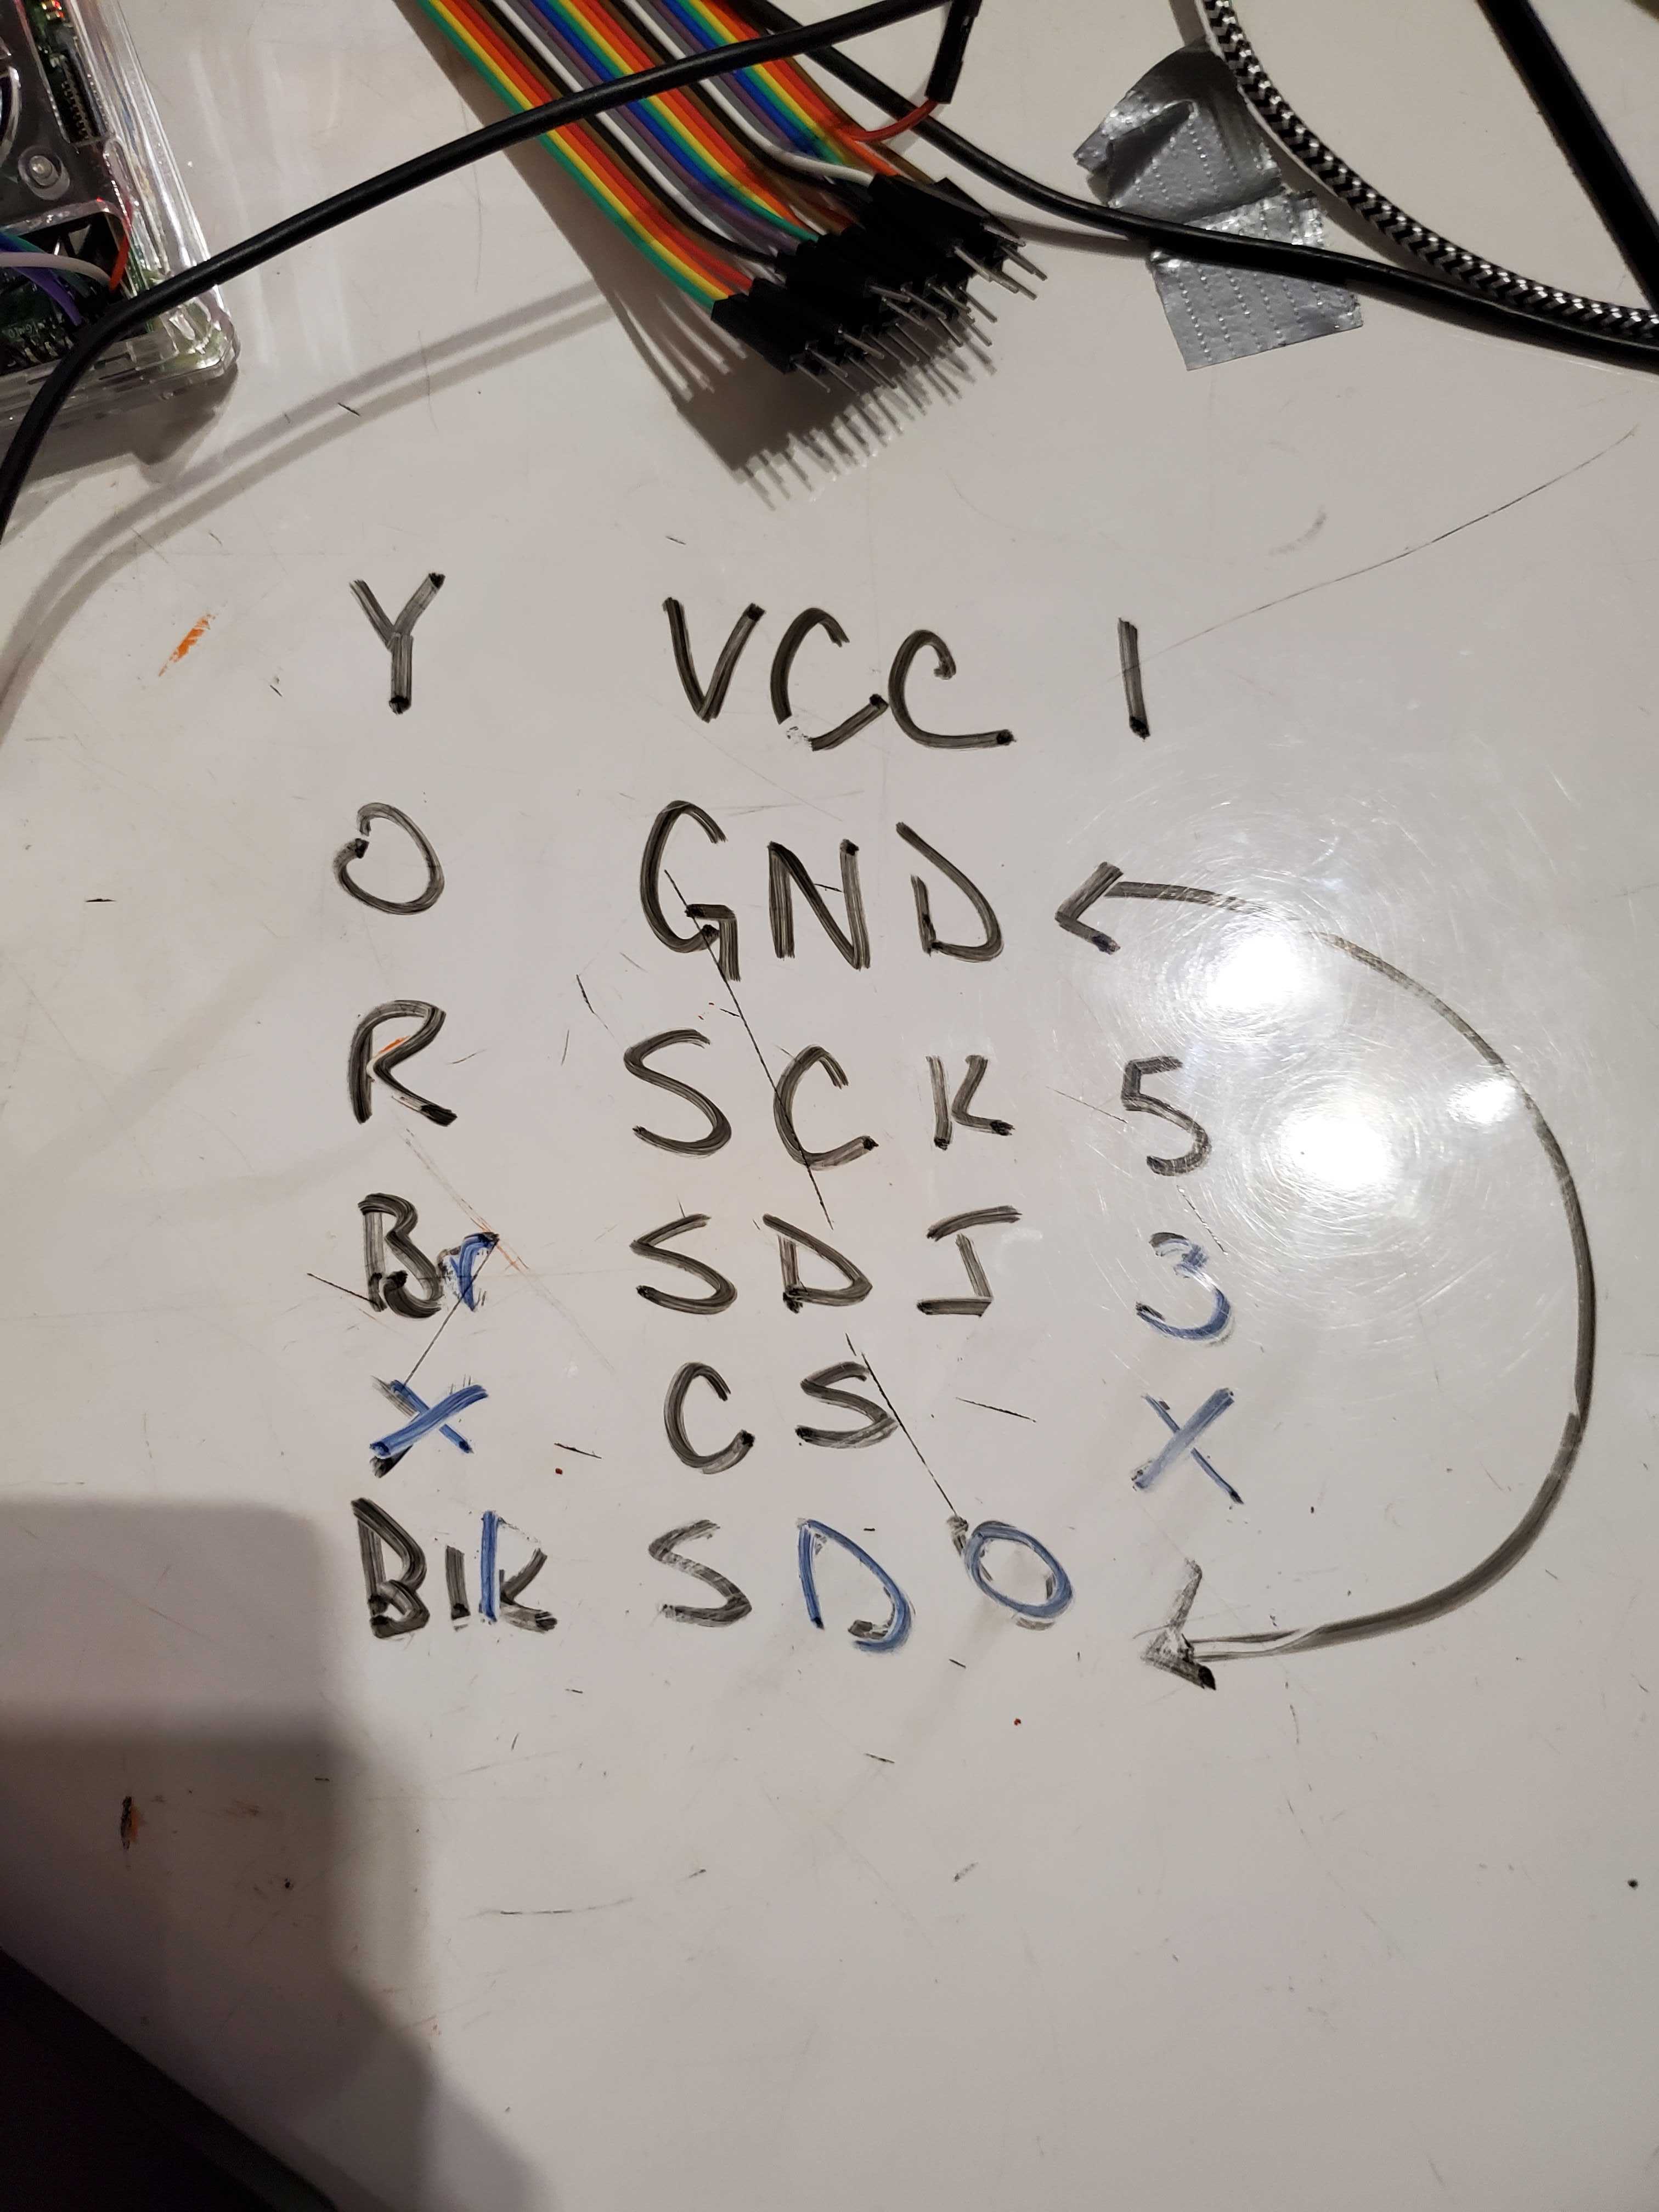 Y VCC 1
O GND
R SCK 5
Br SDI 3
X CS X
BlK SDO